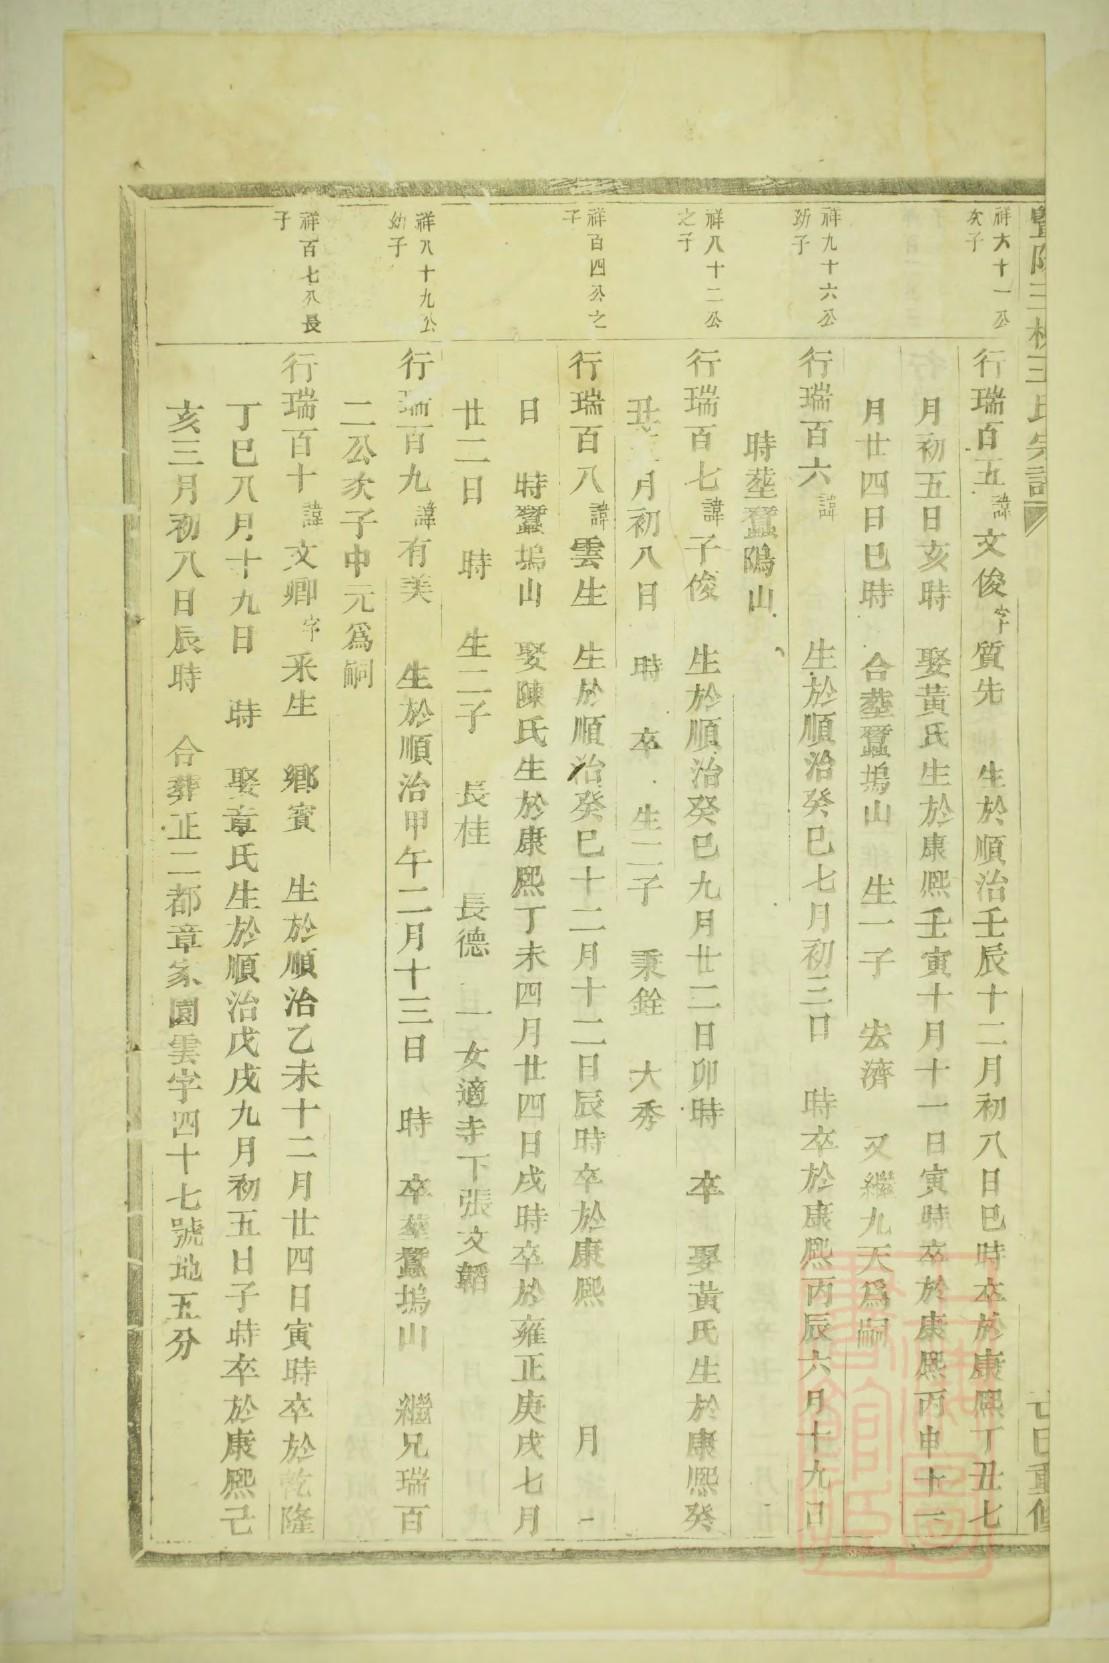 祥六十一公
次子
行瑞百五諱文俊字質先 生於順治壬辰十二月初八日巳時卒於康熙丁丑七
月初五日亥時 娶黃氏生於康熙壬寅十月十一日寅時卒於康熙丙申十一
月廿四日巳時 合塟蠶塢山 生一子 宏濟 又繼九天爲嗣
祥九十六公
幼子
行瑞百六諱 生於順治癸巳七月初三日 時卒於康熙丙辰六月十九日
時塟蠶隝山
祥八十二公
之子
行瑞百七諱子俊 生於順治癸巳九月廿二日卯時 卒 娶黃氏生於康熙癸
丑 月初八日 時 卒 生二子 秉銓 大秀
祥百四公之
子
行瑞百八諱雲生 生於順治癸巳十二月十二日辰時卒於康熙 月
日 時蠶塢山 娶陳氏生於康熙丁未四月廿四日戌時卒於雍正庚戌七月
廿二日 時 生二子 長桂 長德 一女適寺下張文韜
祥八十九公
幼子
行瑞百九諱有美 生於順治甲午二月十三日 時 卒塟蠶塢山 繼兄瑞百
二公次子中元爲嗣
祥百七公長
子
行瑞百十諱文卿字采生 鄉賓 生於順治乙未十二月廿四日寅時卒於乾隆
丁巳八月十九日 時 娶章氏生於順治戊戌九月初五日子時卒於康熙己
亥三月初八日辰時 合葬正二都章家園雲字四十七號地五分